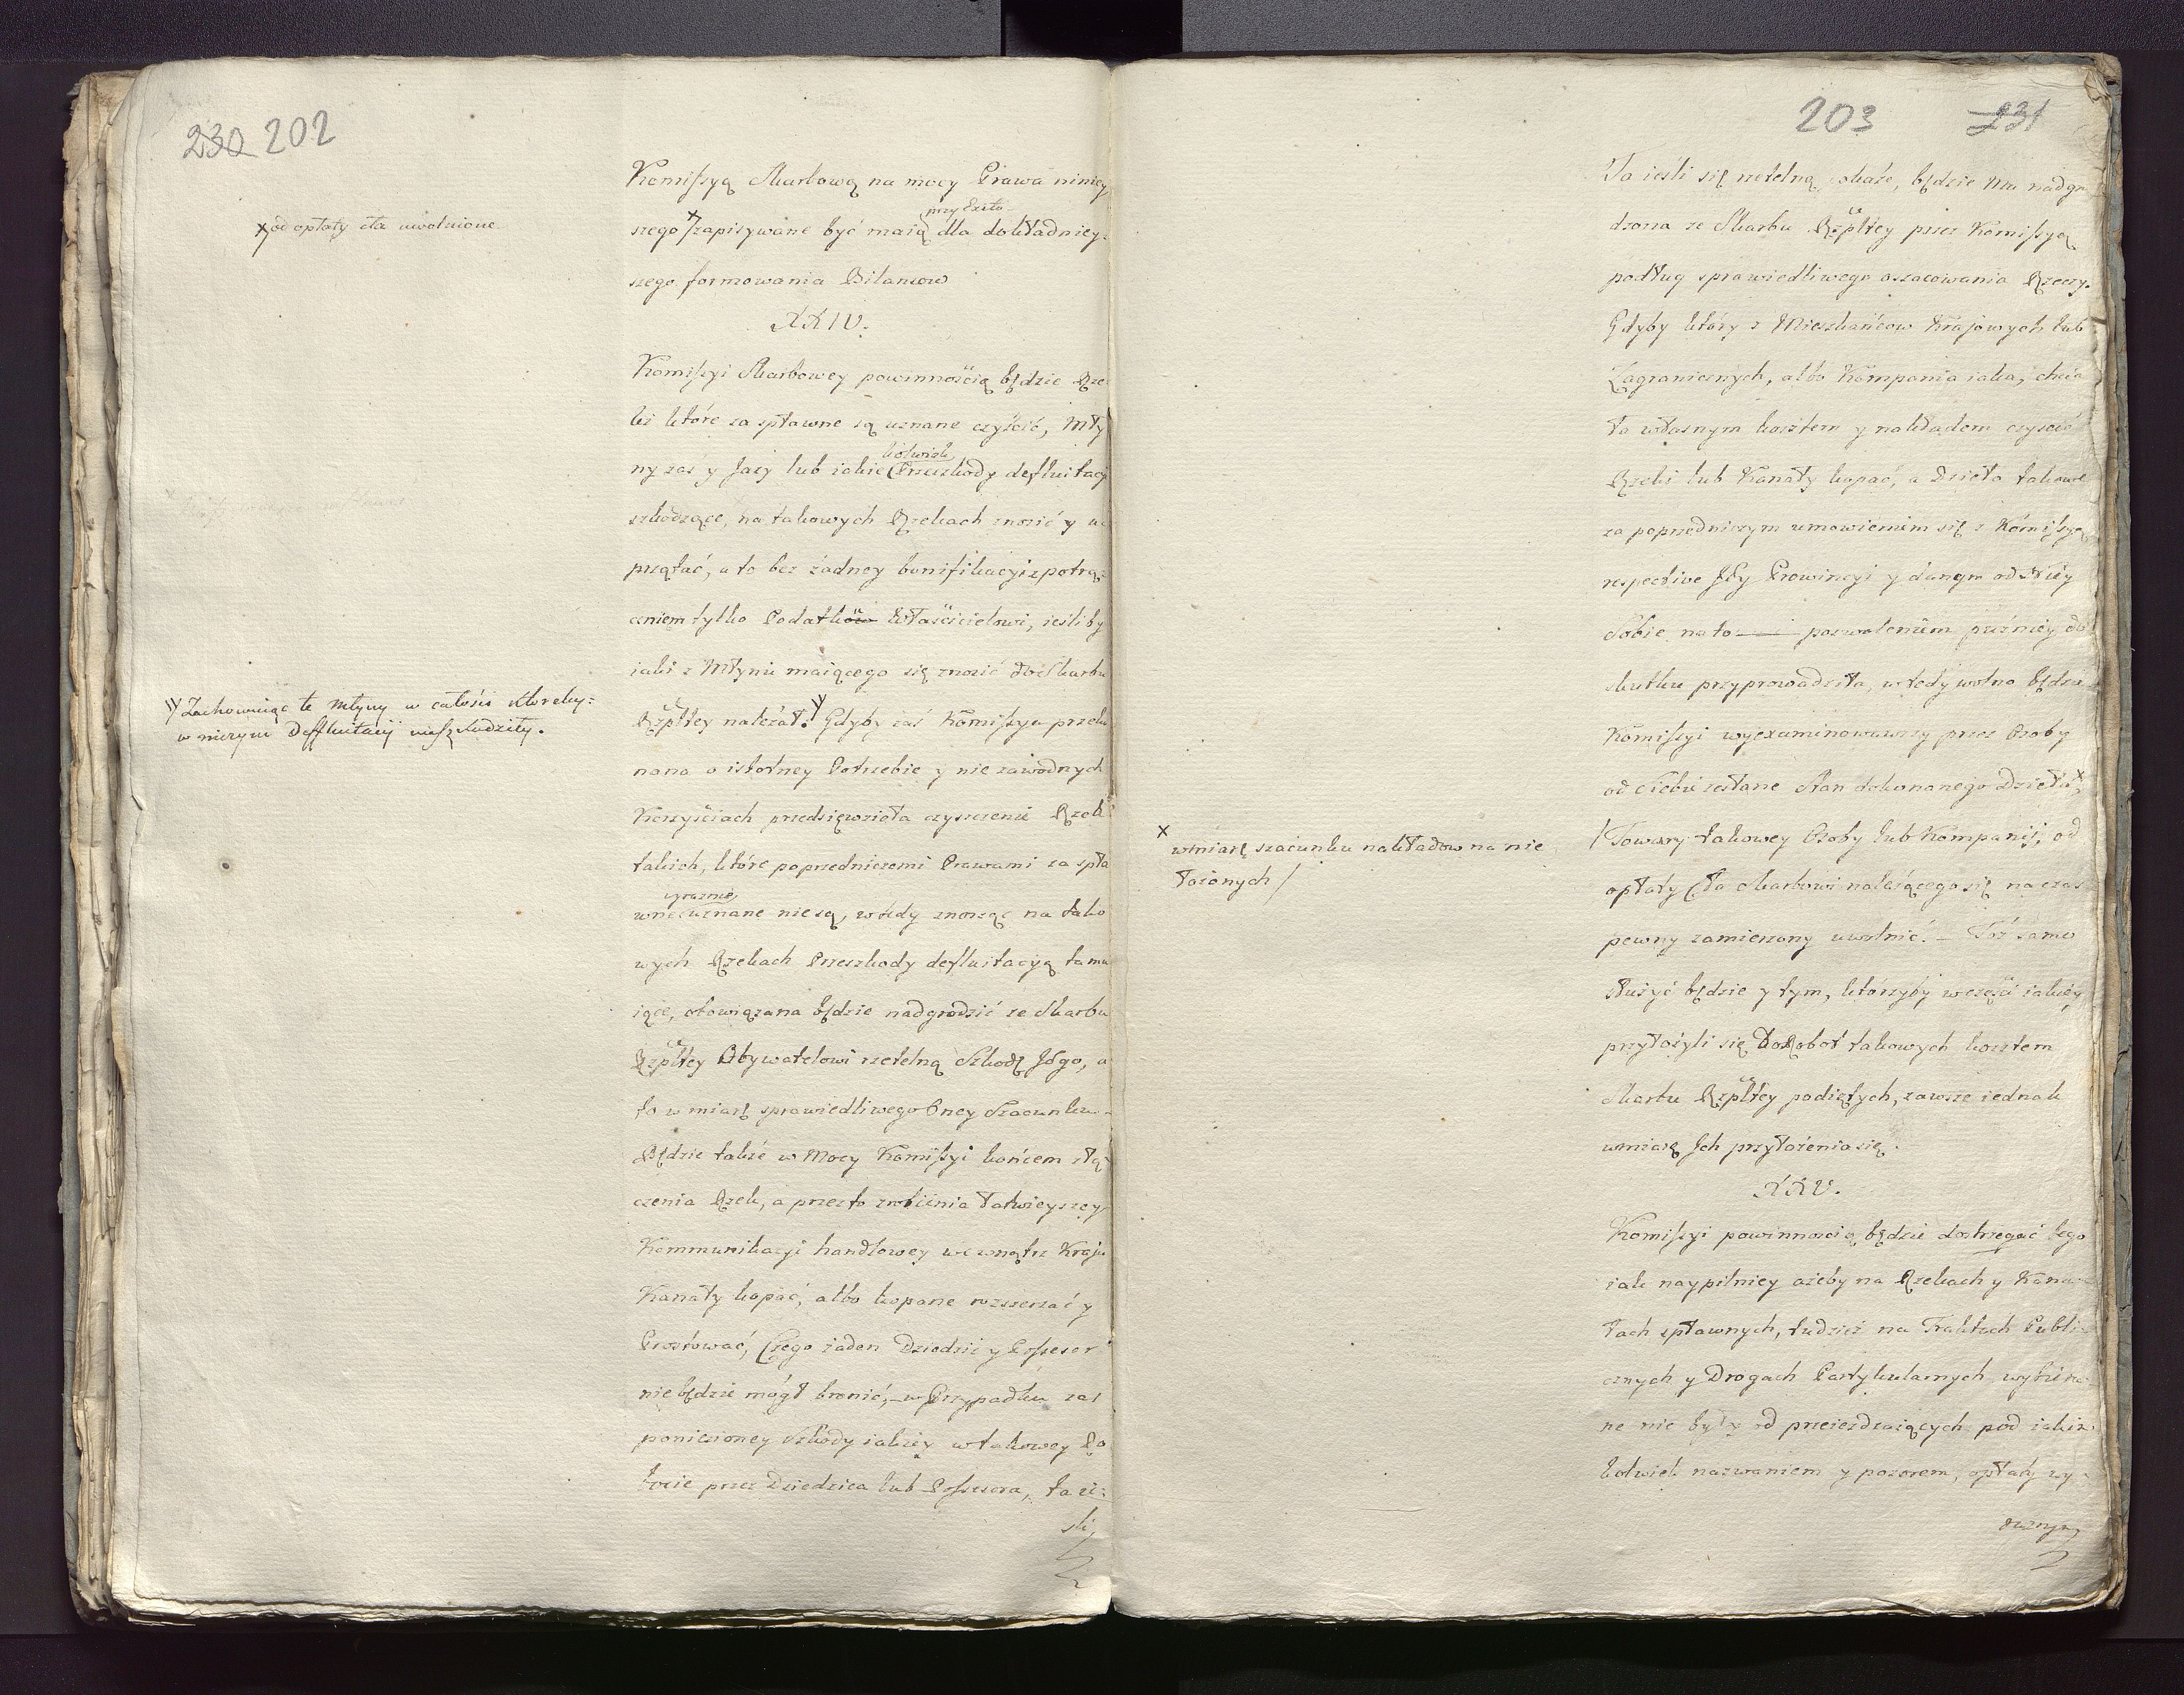 230 202
Komissyą Skarbową na mocy Prawa niniey
przy Exito
szego zapisywane być maią dla dokładniey:
x od opłaty cła uwolnione
szego formowania Bilansow
XXIV.
Komissyi Skarbowey powinnością będzie Rze
ki które za spławne są uznane czyścić, Mły
kolwiek
ny zaś y Jazy lub iakie Przeszkody defluitacyi
szkodzące, na takowych Rzekach znosić y u
przątać, a to bez żadney bonifikacyi z potrą:
ceniem tylko Podatków Właścicielowi, ieśliby
iaki z Młynu maiącego się znosić do Skarbu
Rzpltey należał. Gdyby zaś Komissya przeko
Y Zachowuiąc te Młyny w całości któreby:
w niczym Deffluitacij nieszkodziły.
nana o istotney Potrzebie y niezawodnych
Korzyściach przedsięwzieła czyszczenie Rzek
takich, które poprzedniczemi Prawami za spła
wyraznie
wne uznane nie są, wtedy znosząc na tako
wych Rzekach Przeszkody defluitacyą tamu
iące, obowiązana będzie nadgrodzić ze Skarbu
Rzpltey Obywatelowi rzetelną Szkodę Jego, a
to w miarę sprawiedliwego Oney Szacunku
Będzie także w Mocy Komissyi końcem złą
czenia Rzek, a przez to zrobienia łatwieyszey
Kommunikacyi handlowey wewnątrz Kraju
Kanały kopać, albo kopane rozszerzać y
Prostować, Czego żaden Dziedzic y Possessor
nie będzie mógł bronić, w Przypadku zaś
poniesioney Szkody iakiey w takowey Ro
bocie przez Dziedzica lub Possessora, ta ie:
śli
203 231
Ta ieśli się rzetelną okaże, będzie Mu nadgro
dzona ze Skarbu Rzpltey przez Komissyą
podług sprawiedliwego oszacowania Rzeczy.
Gdyby który z Mieszkańcow Krajowych lub
Zagranicznych, albo Kompania iaka, chcia
ła własnym kosztem y nakładem czyścić
Rzeki lub Kanały kopać, a Dzieło takowe
za poprzedniczym umowieniem się z Komissyą
respective Jey Prowincyi y danym od Niey
Sobie na to pozwoleniem puźniey do
skutku przyprowadziła, wtedy wolno będzie
Komissyi wyexaminowawszy przez Osoby
od Siebie zesłane Stan dokonanego Dzieła,
Towary takowey Osoby lub Kompanij, od
x
wmiarę szacunku nakładow na nie
łożonych /
opłaty Cła Skarbowi należącego się na czas
pewny zamierzony uwolnić. – Toż samo
służyć będzie y tym, którzyby w części iakiey
przyłożyli się do Robot takowych kosztem
Skarbu Rzpltey podiętych, zawsze iednak
wmiarę Ich przyłożenia się.
XXV.
Komissyi powinnością będzie dostrzegać tego
iak naypilniey ażeby na Rzekach y Kana
łach spławnych, tudzież na Traktach Publi
cznych y Drogach Partykularnych, wybiera
ne nie były od przeieżdzaiących pod iakim
kolwiek nazwaniem y pozorem, opłaty